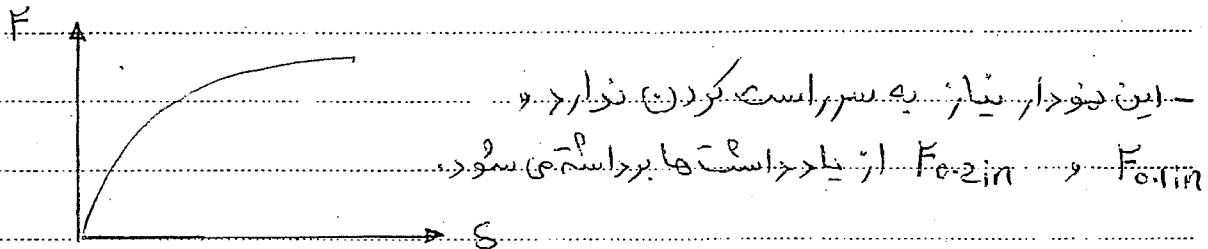 F
- این نمودار نیاز به سر راست کردن ندارد و
F0.1in و F0.2in از یادداشت ها برداشته می شود.
δ